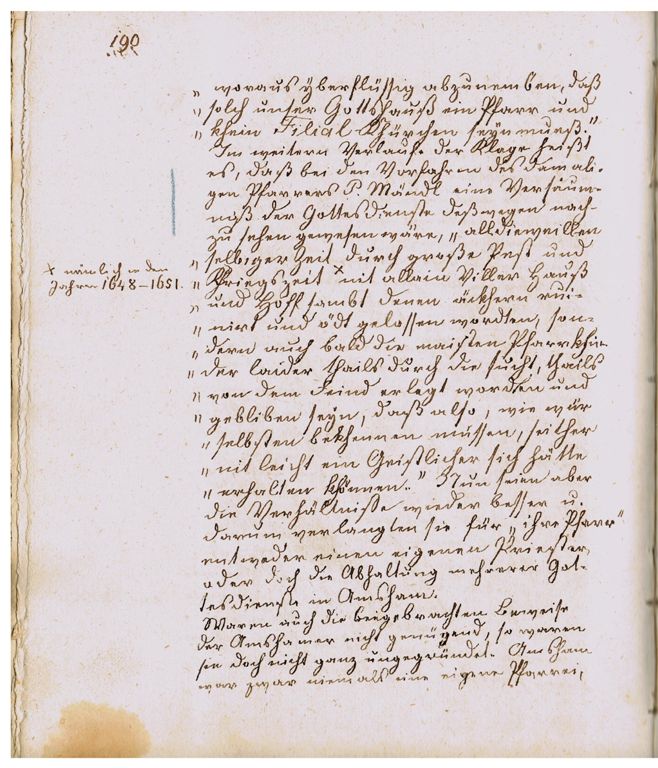 190
„ woraus yberflüssig abzunemben, daß
„ solch unser Gottshauß ein Pfarr und
„ khein Filial Khürchen seyn mueß.“
Im weitern Verlauf der Klage heißt
es, daß bei den Vorfahren des damali-
gen Pfarrers P. Mändl eine Versäum-
niß der Gottesdienste deßwegen nach-
zu sehen gewesen wäre, „alldieweillen
„ selbiger Zeit durch große Pest und
„ Khriegszeit × nit allein Viller Hauß
„ und Hoff sambt denen äckhern rui-
„ nirt und ödt gelossen wordten, son-
„ dern auch bald die maisten Pfarrkhin-
„ der laider thails durch die sucht, thails
„ von dem Feind erlegt worden und
„ gebliben seyn, daß also, wie wür
„ selbsten bekhennen müssen, seither
„ nit leicht ein Geistlicher sich hätte
„ erhalten khönnen.“ Nun seien aber
die Verhältnisse wieder besser u.
darum verlangten sie für „ihre Pfarr“
entweder einen eigenen Priester,
oder doch die Abhaltung mehrerer Got-
tesdienste in Amsham.
Waren auch die beigebrachten Beweise
der Amshamer nicht genügend, so waren
sie doch nicht ganz ungegründet. Amsham
war zwar niemals eine eigene Pfarrei,
× nämlich in den
Jahren 1648–1651.